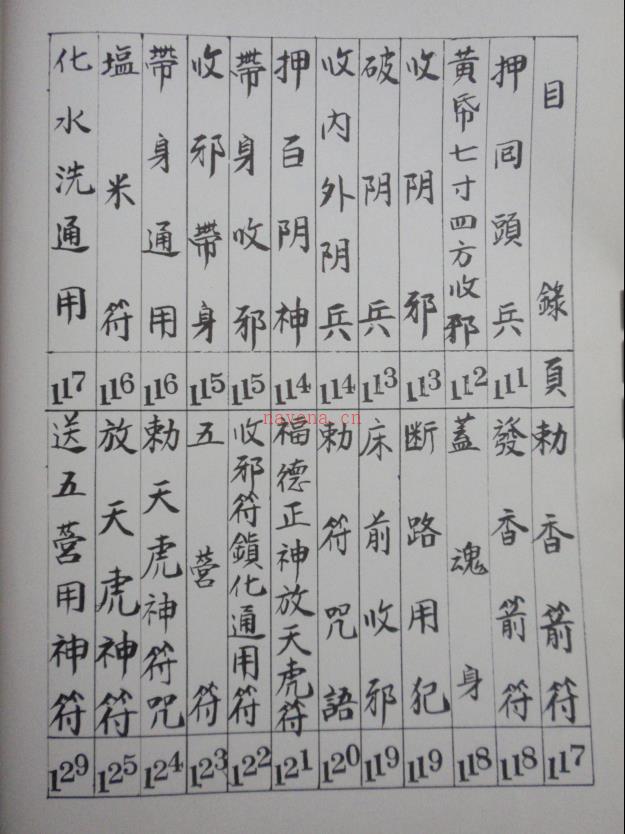 目錄 頁
押回頭兵 111
黃昏七寸四方收邪 112
收阴邪 113
破阴兵 113
收内外阴兵 114
押百阴神 114
帶身收邪 115
收邪帶身 115
帶身通用 116
塩米符 116
化水洗通用 117
勅香箭符 117
發香箭符 118
蓋魂身 118
断路用犯 119
床前收邪 119
勅符咒語 120
福德正神放天虎符 121
收邪符鎮化通用符 122
五營符 123
勅天虎神符咒 124
放天虎神符 125
送五營用神符 129
nayona.cn